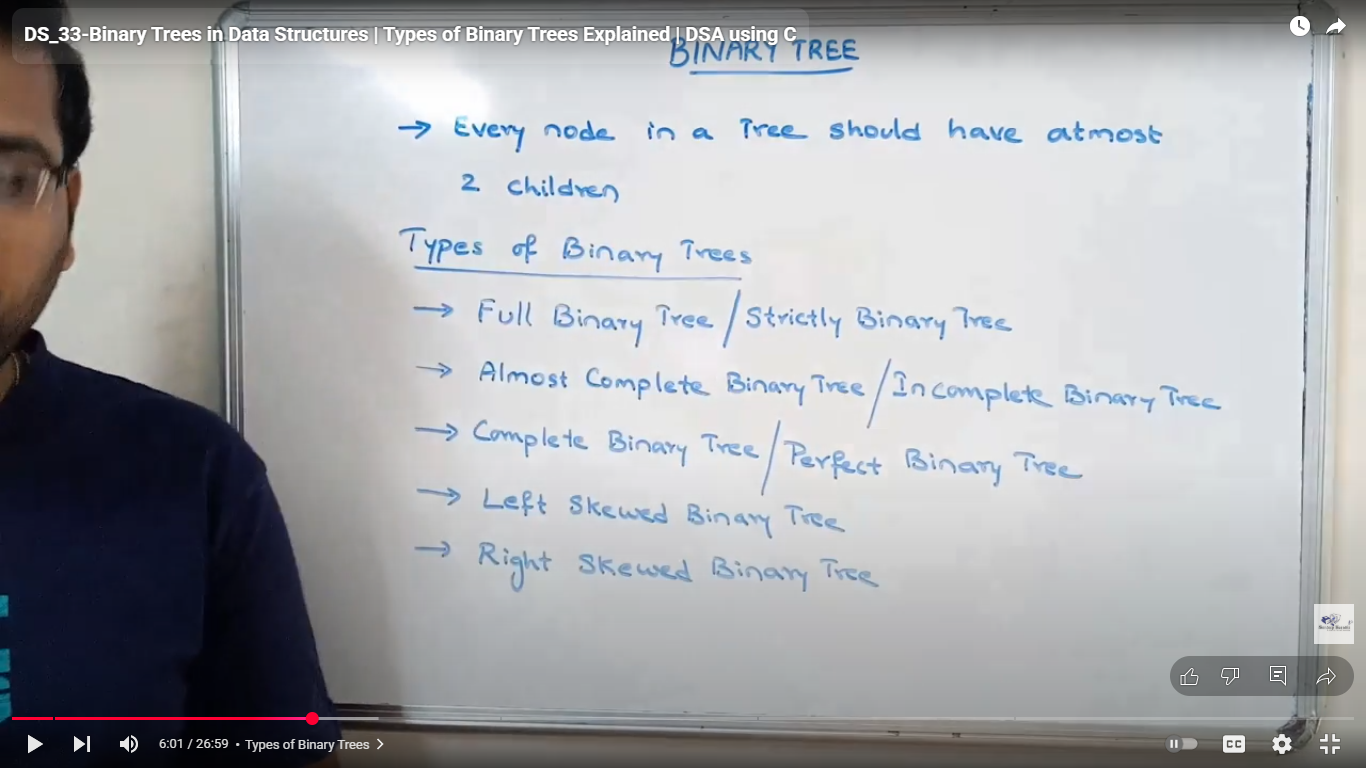 DS_33-Binary Trees in Data Structures | Types of Binary Trees Explained | DSA using C
BINARY TREE
→ Every node in a Tree should have atmost
2 children
Types of Binary Trees
→ Full Binary Tree / Strictly Binary Tree
→ Almost Complete Binary Tree / Incomplete Binary Tree
→ Complete Binary Tree / Perfect Binary Tree
→ Left Skewed Binary Tree
→ Right Skewed Binary Tree
6:01 / 26:59 • Types of Binary Trees >
CC